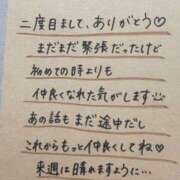 二度目まして、ありがとう♡
まだまだ緊張だったけど
初めての時よりも
仲良くなれた気がします☺
あの話もまだ途中だし
これからもっと仲良くしてね♡
来週には晴れますように…